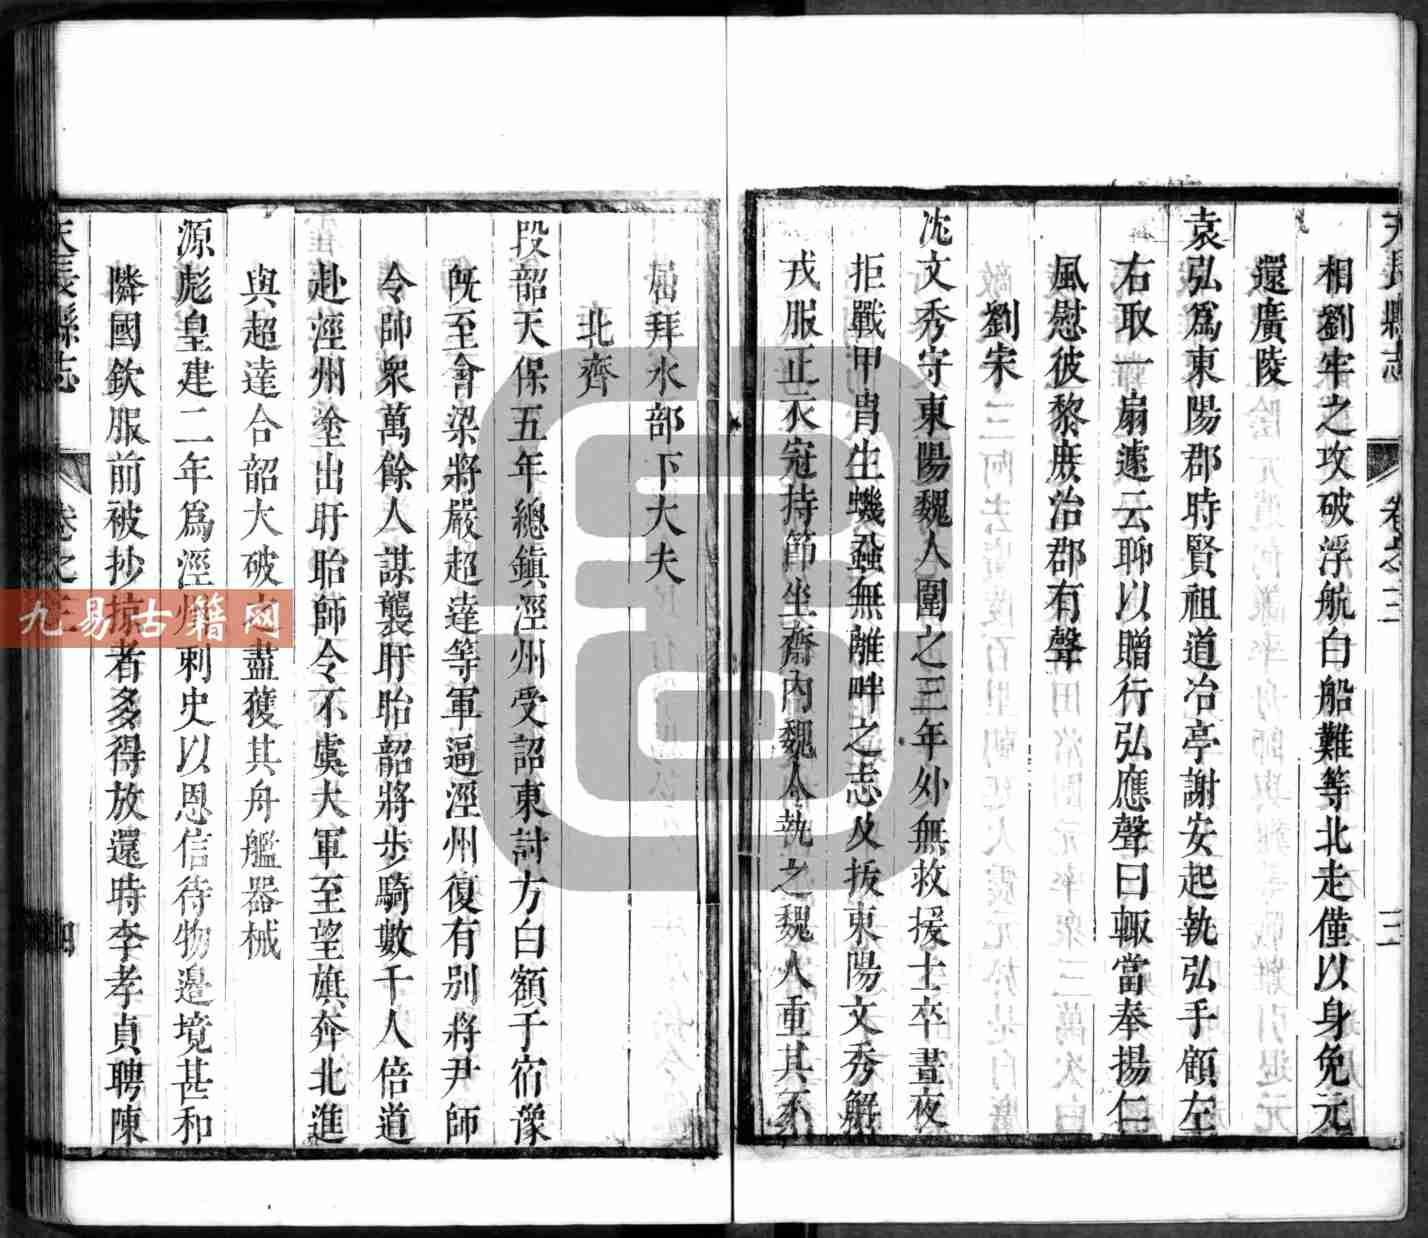 天長縣志
卷之三
三
相劉牢之攻破浮航白船難等北走僅以身免元
還廣陵
袁弘爲東陽郡時賢祖道冶亭謝安起執弘手顧左
右取一扇遽云聊以贈行弘應聲曰輙當奉揚仁
風慰彼黎庶治郡有聲
劉宋
沈文秀守東陽魏人圍之三年外無救援士卒晝夜
拒戰甲胄生蟣蝨無離畔之志及拔東陽文秀解
戎服正衣冠持節坐齋內魏人執之魏人重其不
屈拜水部下大夫
北齊
段韶天保五年總鎮涇州受詔東討方白額于宿豫
旣至會梁將嚴超達等軍逼涇州復有别將尹師
令帥衆萬餘人謀襲盱眙韶將步騎數千人倍道
赴涇州塗出盱眙師令不虞大軍至望旗奔北進
與超達合韶大破之盡獲其舟艦器械
源彪皇建二年爲涇州刺史以恩信待物邉境甚和
隣國欽服前被抄掠者多得放還時李孝貞聘陳
天長縣志
卷之三
四
九易古籍网